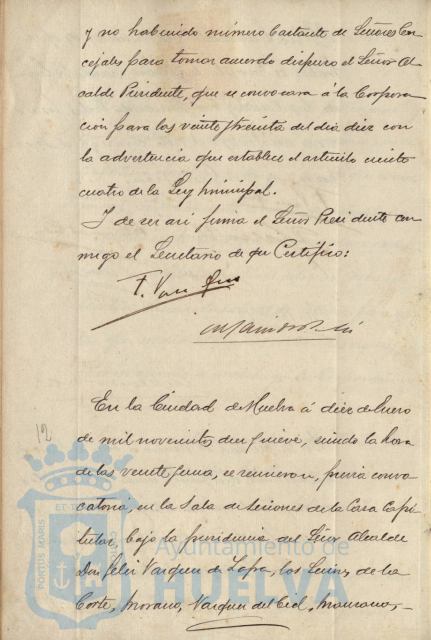 y no habiendo número bastante de Señores Con-
cejales para tomar acuerdo dispuso el Señor Al-
calde Presidente, que se convocara á la Corpora-
ción para las veinte y treinta del dia diez con
la advertencia que establece el articulo ciento
cuatro de la Ley municipal.
Y de ser asi firma el Señor Presidente con-
migo el Secretario de que Certifico:
F. Vazquez
En la Ciudad de Huelva á diez de Enero
12
de mil novecientos diez y nueve, siendo la hora
de las veinte y una, se reunieron, previa convo-
catoria, en la Sala de Sesiones de la Casa Capi-
tular, bajo la presidencia del Señor Alcalde
Don Felix Vazquez de Zafra, los Señores de la
Corte, Morano, Vazquez del Cid, Manzano,
PORTUS MARIS ET
Ayuntamiento de
HUELVA